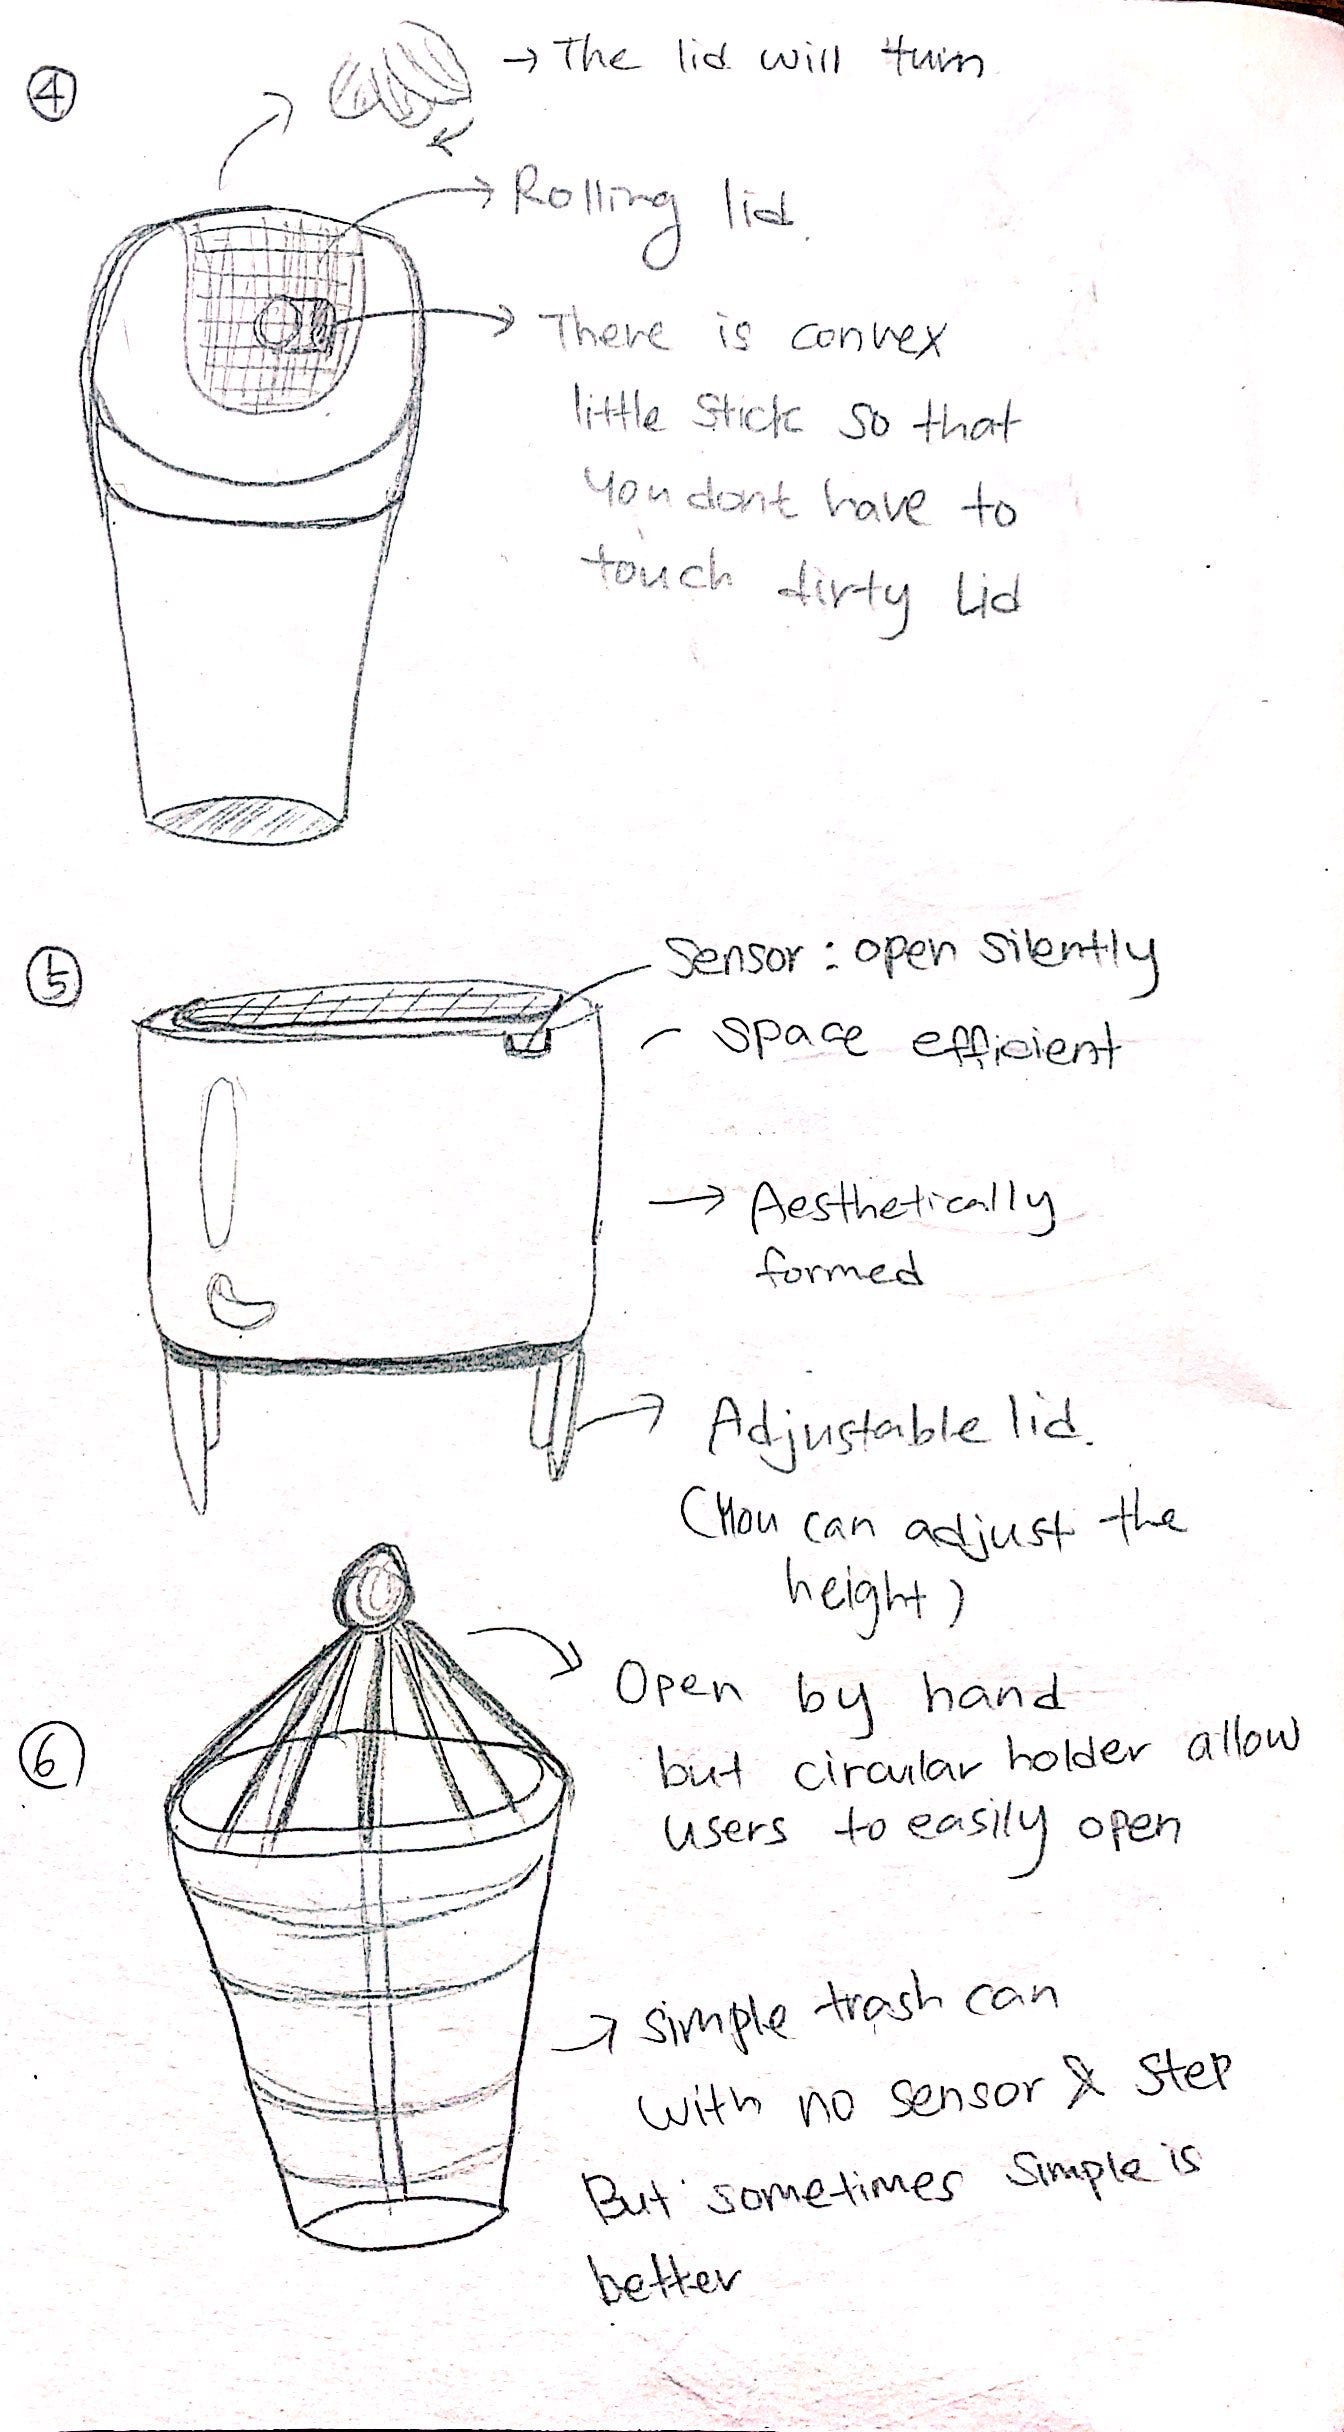 4
→ The lid will turn
Rolling lid.
There is convex
little stick so that
you dont have to
touch dirty lid
5
Sensor : open silently
- space efficient
→ Aesthetically
formed
Adjustable lid.
(You can adjust the
height)
6
Open by hand
but circular holder allow
users to easily open
→ simple trash can
with no sensor & step
But sometimes simple is
better